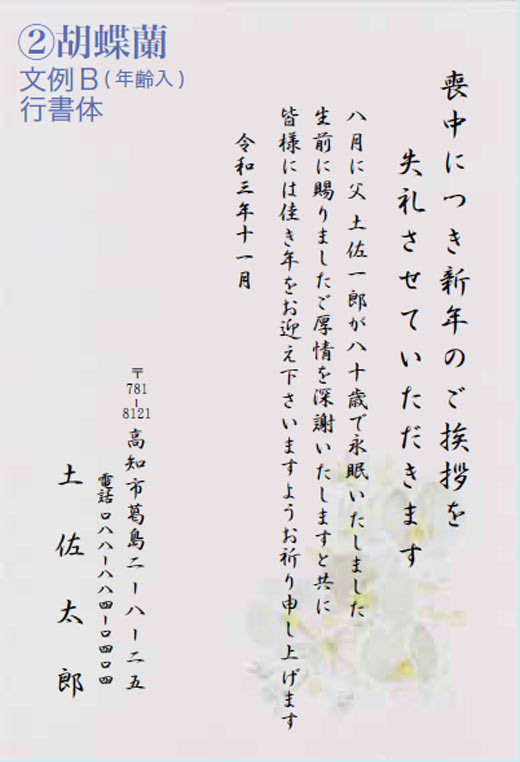 ②胡蝶蘭
文例B(年齢入)
行書体
喪中につき新年のご挨拶を
失礼させていただきます
八月に父 土佐一郎が八十歳で永眠いたしました
生前に賜りましたご厚情を深謝いたしますと共に
皆様には佳き年をお迎え下さいますようお祈り申し上げます
令和三年十一月
〒781-8121 高知市葛島二ー八ー二五
電話〇八八ー八八四ー〇四〇四
土佐太郎